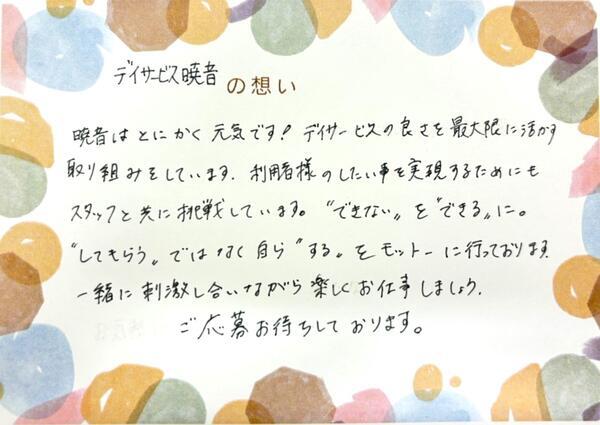 デイサービス暁音 の想い
暁音はとにかく元気です！デイサービスの良さを最大限に活かす
取り組みをしています。利用者様のしたい事を実現するためにも
スタッフと共に挑戦しています。〝できない〟を〝できる〟に。
〝してもらう〟ではなく自ら〝する〟をモットーに行っております。
一緒に刺激し合いながら楽しくお仕事しましょう。
ご応募お待ちしております。